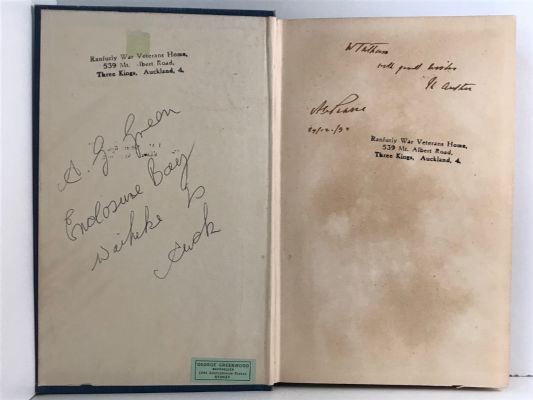 Ranfurly War Veterans Home,
539 Mt. Albert Road,
Three Kings, Auckland, 4.
A. G Green
Enclosure Bay
Waiheke Is
Auck
GEORGE GREENWOOD
BOOKSELLER
SYDNEY
with good wishes
Ranfurly War Veterans Home,
539 Mt. Albert Road,
Three Kings, Auckland, 4.